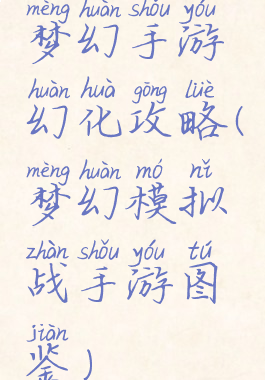 mèng huàn shǒu yóu
梦幻手游
huàn huà gōng lüè
幻化攻略(
mèng huàn mó nǐ
梦幻模拟
zhàn shǒu yóu tú
战手游图
jiàn
鉴)